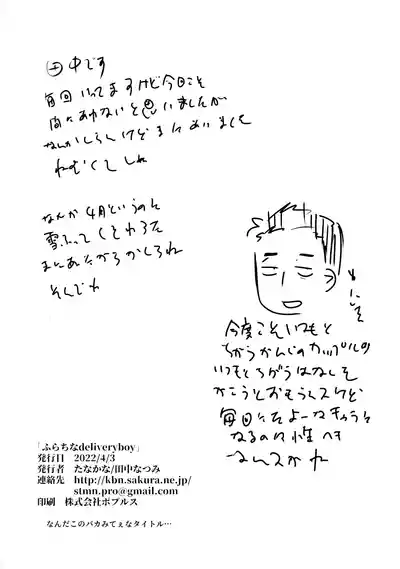 田中です
毎回いってますけど今日こそ
間にあわないと思いましたが
なんかしらんけどまにあいました
ねむくてしね
なんか4月というのに
雪ふってくそわろた
まにあたからかしらね
そんでわ
今度こそいつもと
ちがうかんじのカップルの
いつもとちがうはなしを
かこうとおもうんスけど
毎回にたよーなキャラに
なるのは性ヘキ
なんスかね
「ふらちなdeliveryboy」
発行日 2022/4/3
発行者 たなかな/田中なつみ
連絡先 http://kbn.sakura.ne.jp/
stmn.pro@gmail.com
印刷 株式会社ポプルス
なんだこのバカみてぇなタイトル…